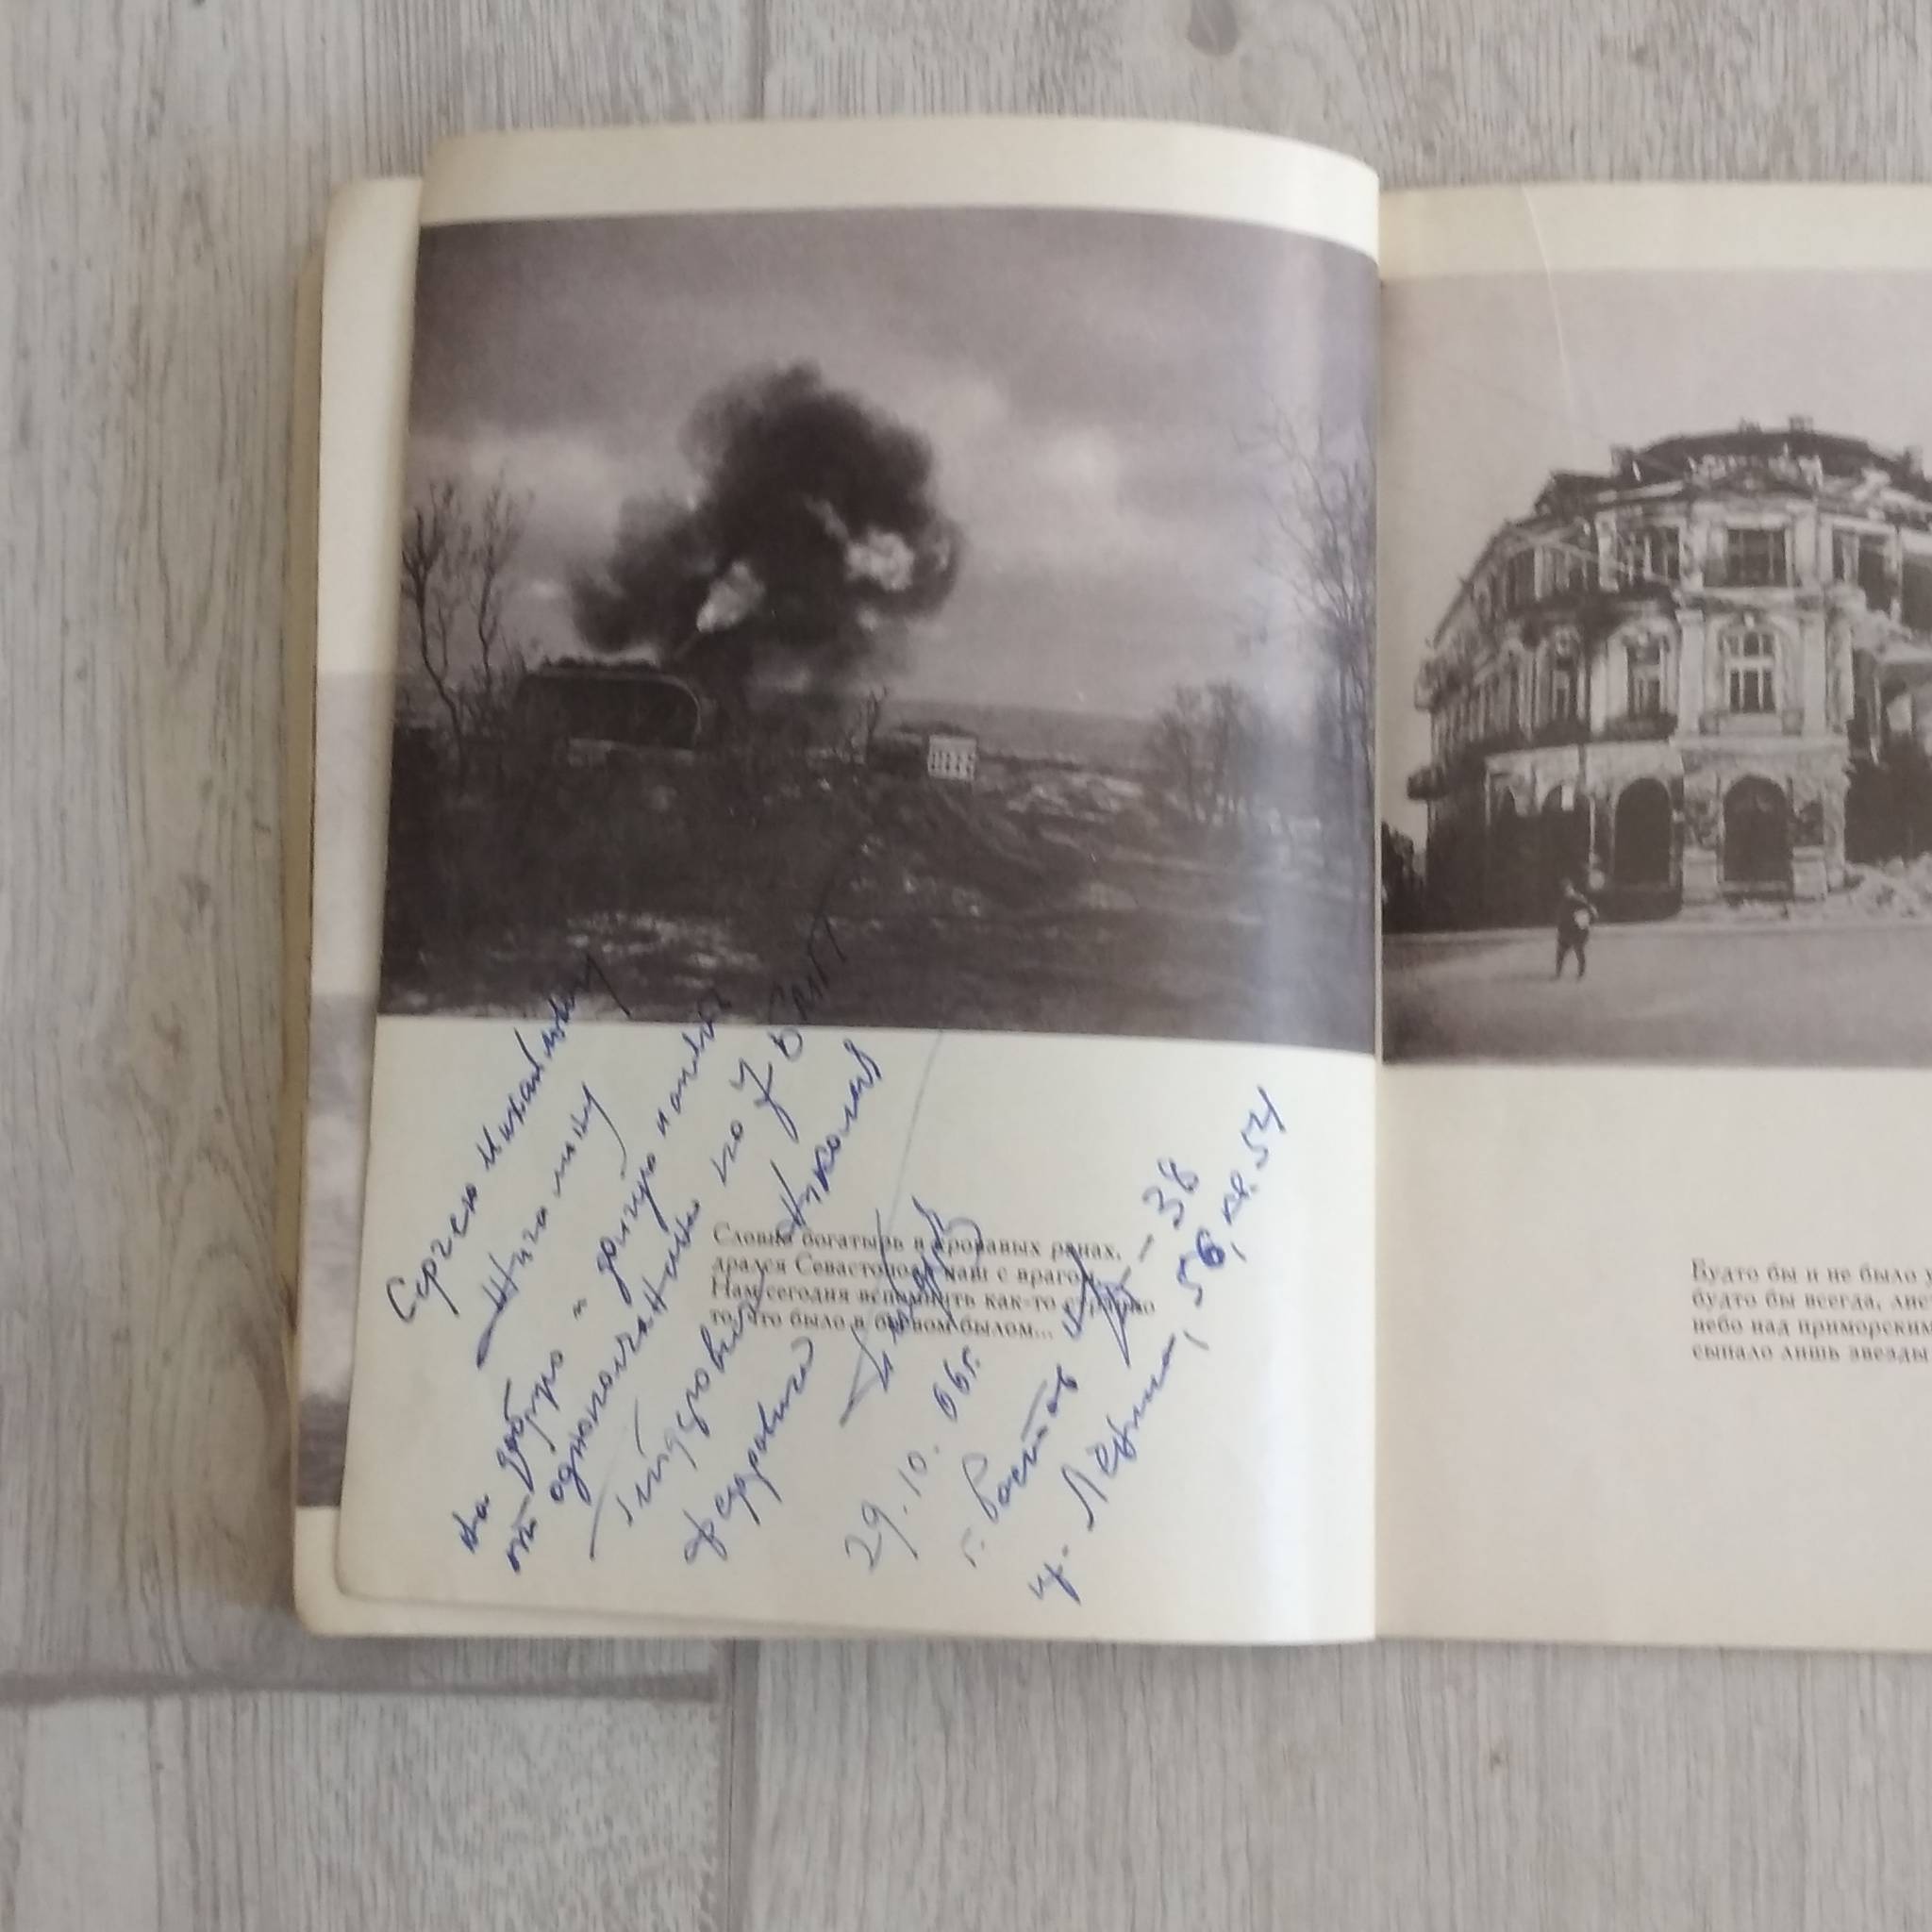 Сергею Михайловичу
на добрую и долгую память
от однополчанина по 7 БАТТ
Николая
Федоровича
29.10.66г.
г. Ростов н/Д-38
ул. Ленина, 56, кв. 54
Словно богатырь в кровавых ранах,
дрался Севастополь наш с врагом.
Нам сегодня вспомнить как-то странно
то, что было в бывом былом...
Будто бы и не было
будто бы всегда,
небо над приморским
сыпало лишь звезды